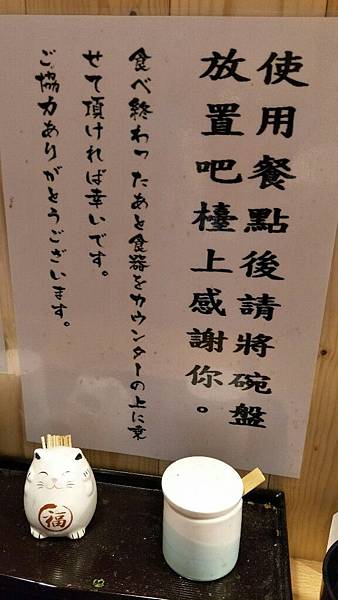 使用餐點後請將碗盤
放置吧檯上感謝你。
食べ終わったあと食器をカウンターの上に乗
せて頂ければ幸いです。
ご協力ありがとうございます。
福